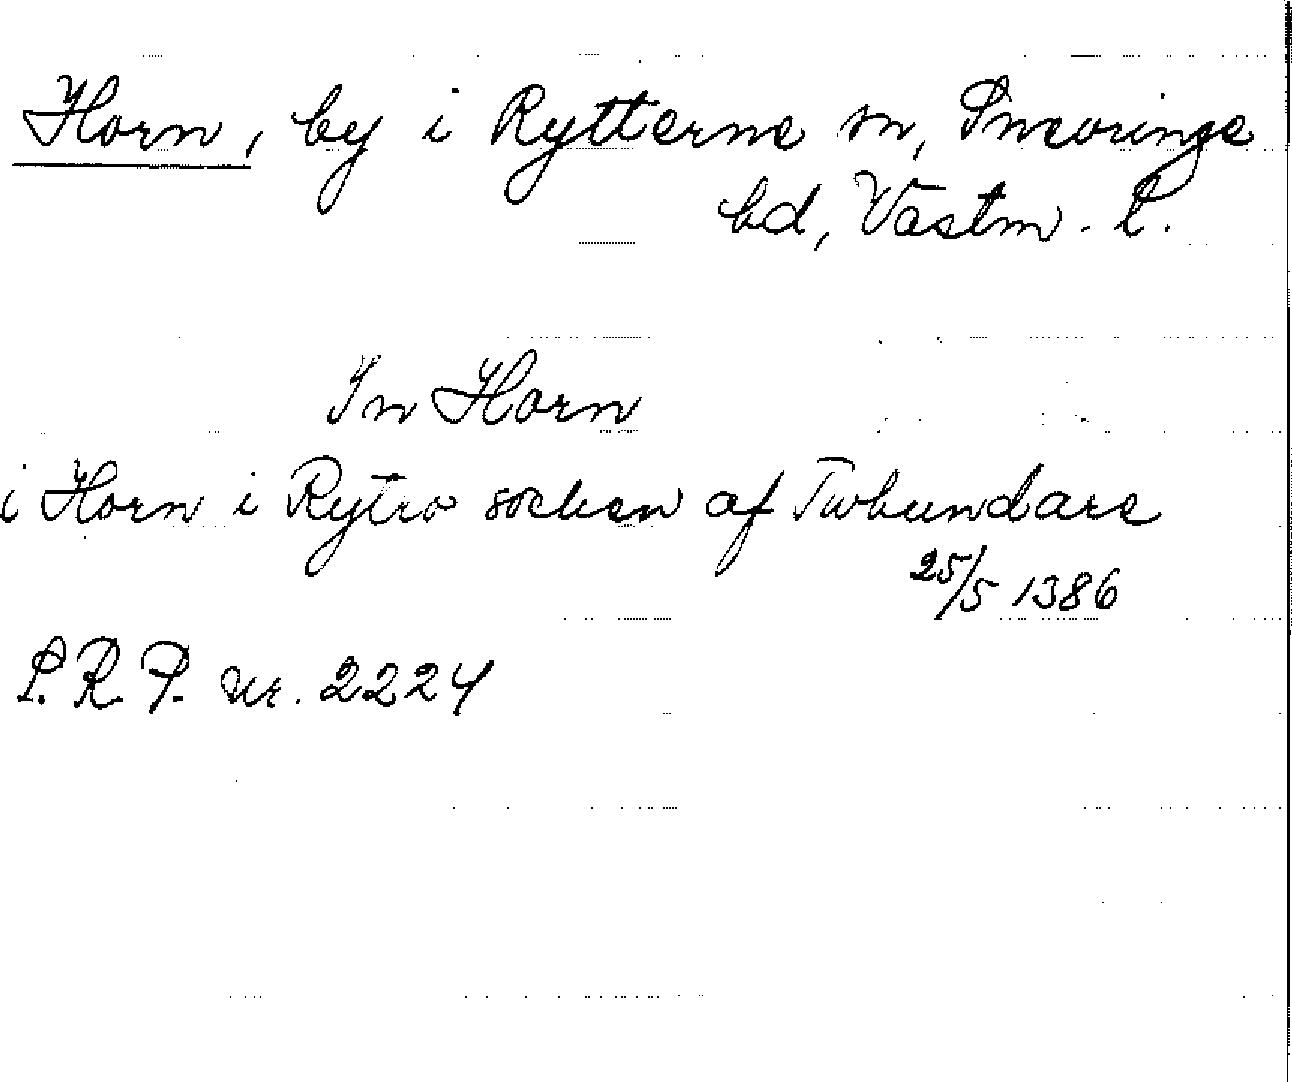 Horn, by i Rytterne sn, Snevringe
hd, Västm. l.
In Horn
i Horn i Rytro socken af Twhundare
25/5 1386
S.R.P. nr. 2224